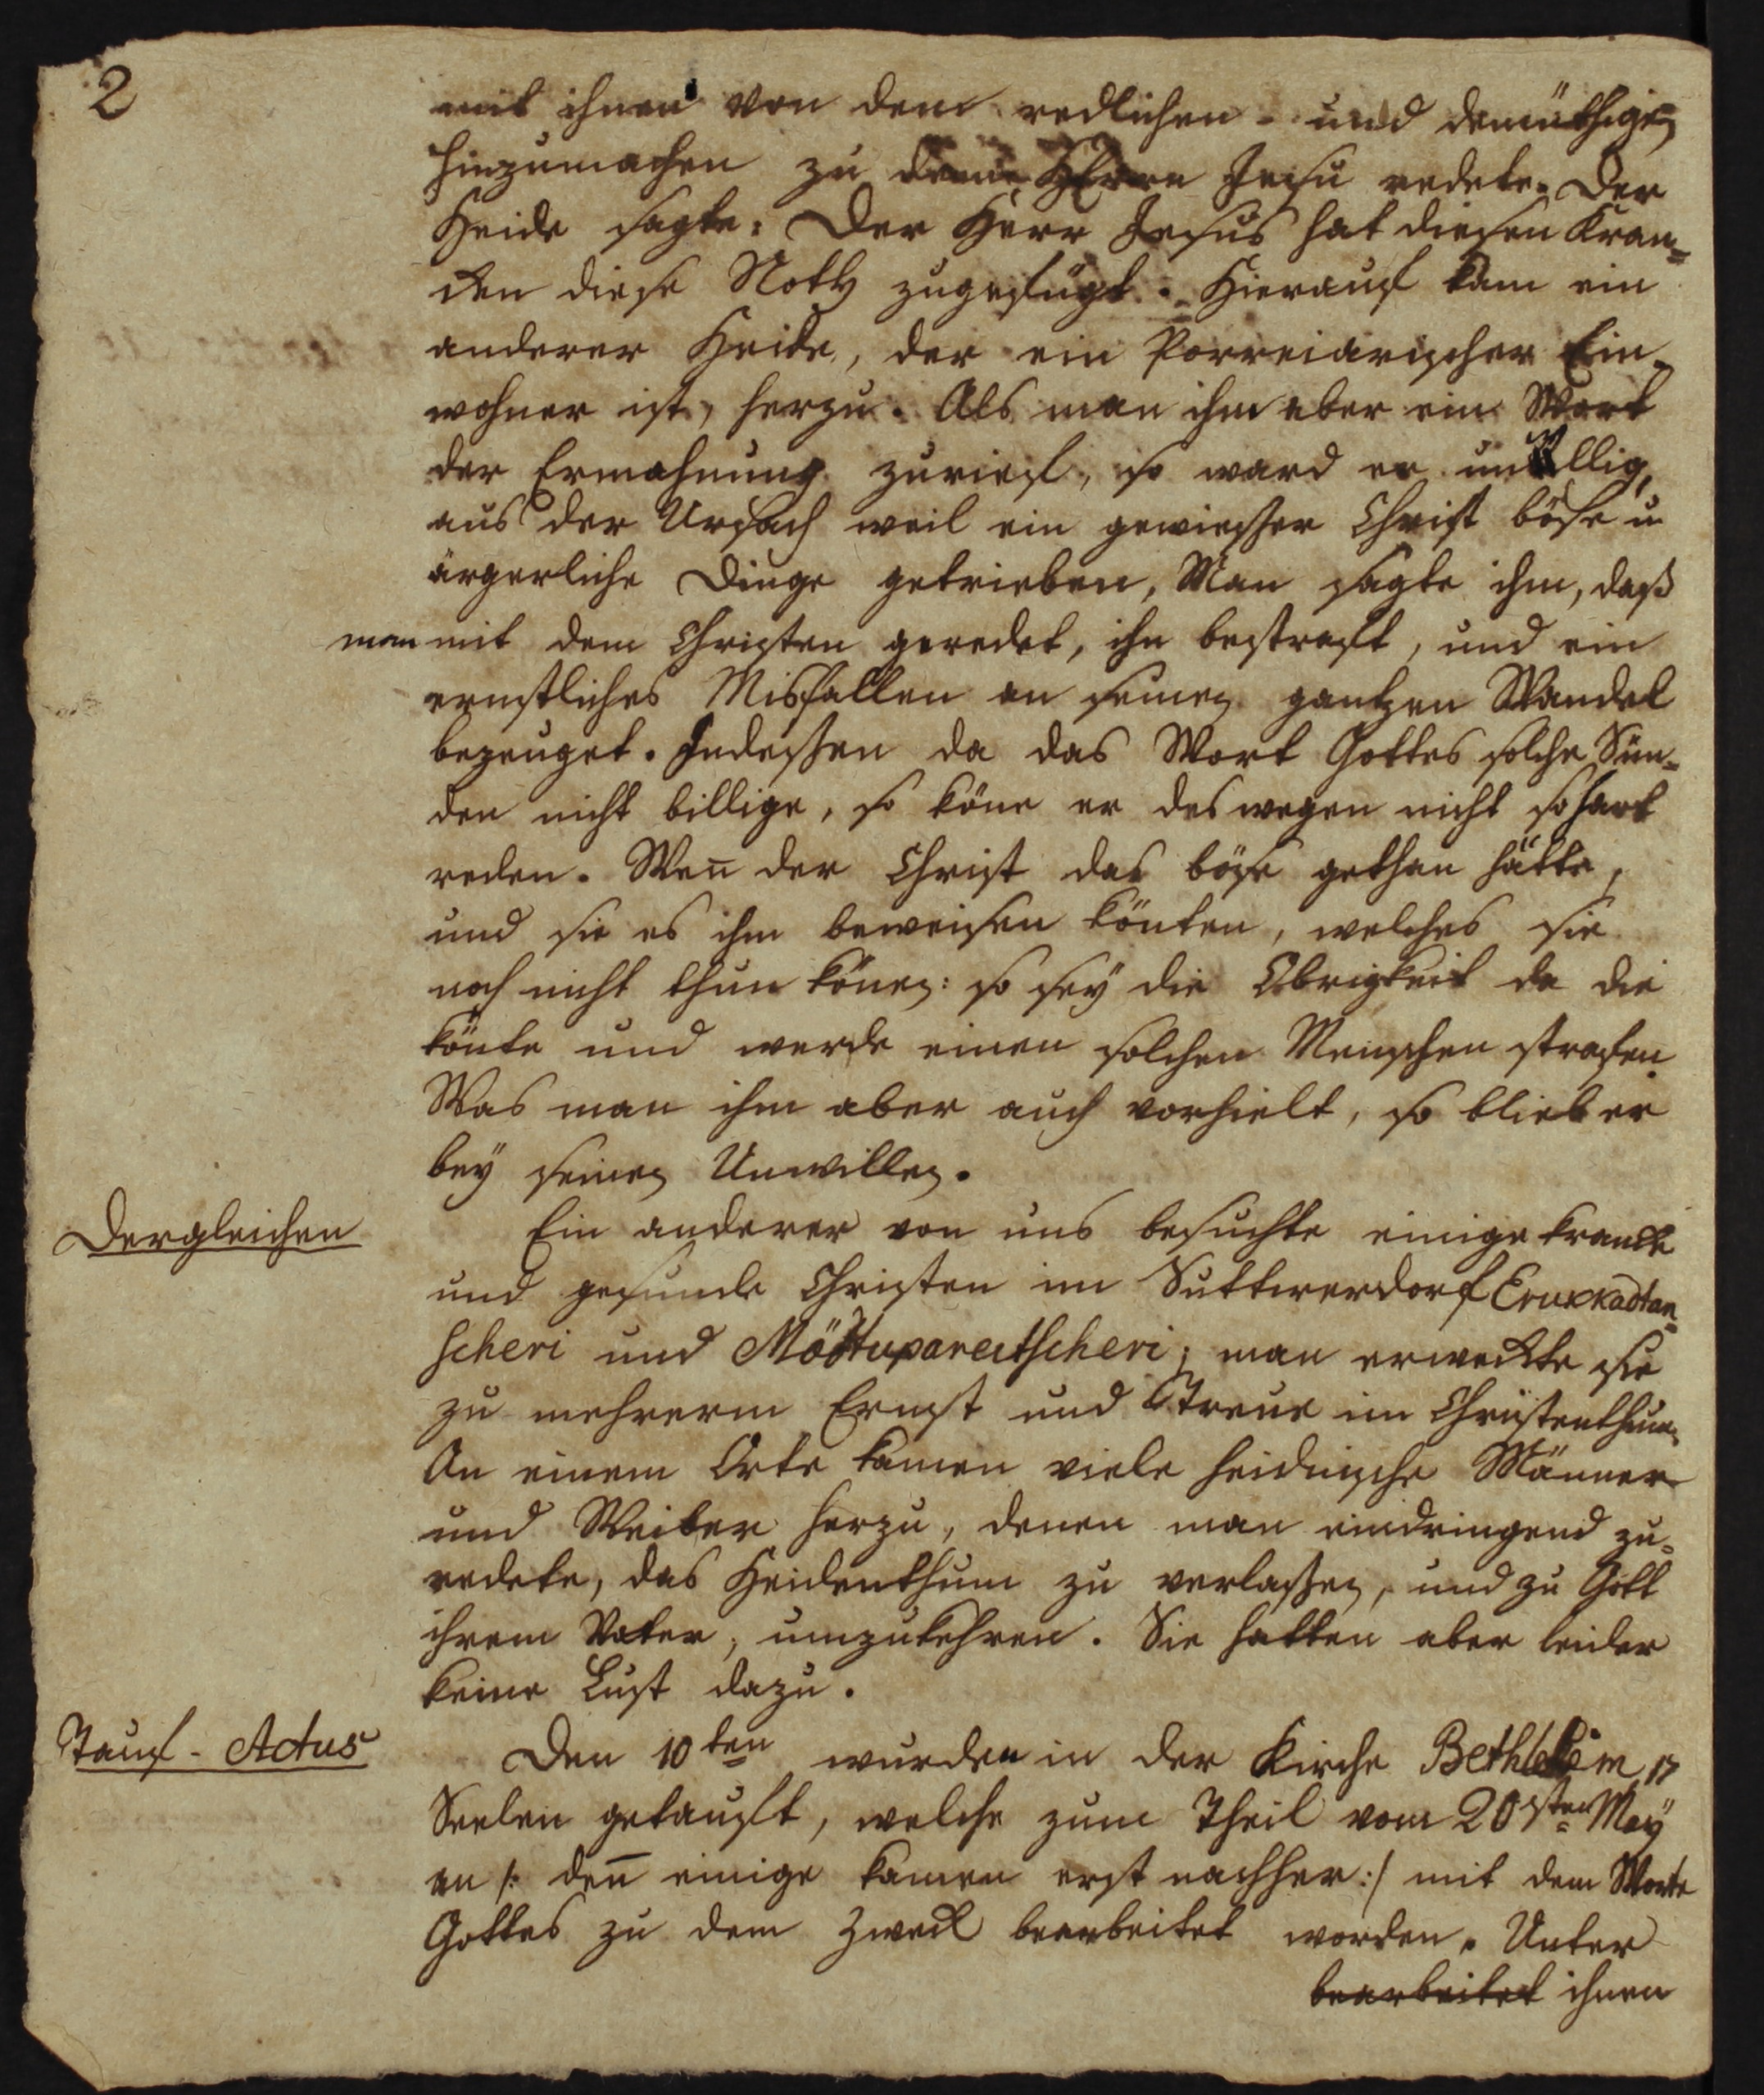 2
mit ihnen von dem redlichen und demüthigen
hinzumachen zu dem HErrn Jesu redete. Der
Heide sagte: Der Herr Jesus hat diesen Kran=
cken diese Noth zugefügt. Hierauf kam ein
anderer Heide, der ein Porreiarischer Ein=
wohner ist, herzu. Als man ihm aber ein Wort
der Ermahnung zurief, so ward er unwillig,
aus der Ursach weil ein gewisser Christ böse u
ärgerliche Dinge getrieben, Man sagte ihm, daß
man mit dem Christen geredet, ihn bestraft, und ein
ernstliches Misfallen an seinen gantzen Wandel
bezeuget. Indessen da das Wort Gottes solche Sün=
den nicht billige, so köne er deswegen nicht so hart
reden. Wen̄ der Christ das böse gethan hätte,
und sie es ihm beweisen könten, welches sie
noch nicht thun könen: so sey die Obrigkeit da die
könte und werde einen solchen Menschen strafen.
Was man ihm aber auch vorhielt, so blieb er
bey seinen Unwillen.
Dergleichen
Ein anderer von uns besuchte einige krancke
und gesunde Christen im Suttirerdorf Erukkadtan=
scheri und Möttupareitscheri; man erweckte sie
zu mehrerem Ernst und Treue im Christenthum.
An einem Orte kamen viele heidnische Männer
und Weiber herzu, denen man eindringend zu=
redete, das Heidenthum zu verlassen, und zu Gott
ihrem Vater, umzukehren. Sie hatten aber leider
keine Lust dazu.
Tauf - Actus
Den 10ten wurden in der Kirche Bethlehem 17
Seelen getauft, welche zum Theil vom 20sten May
an /: den̄ einige kamen erst nachher :/ mit dem Worte
Gottes zu dem Zweck bearbeitet worden. Unter
bearbeitet ihnen